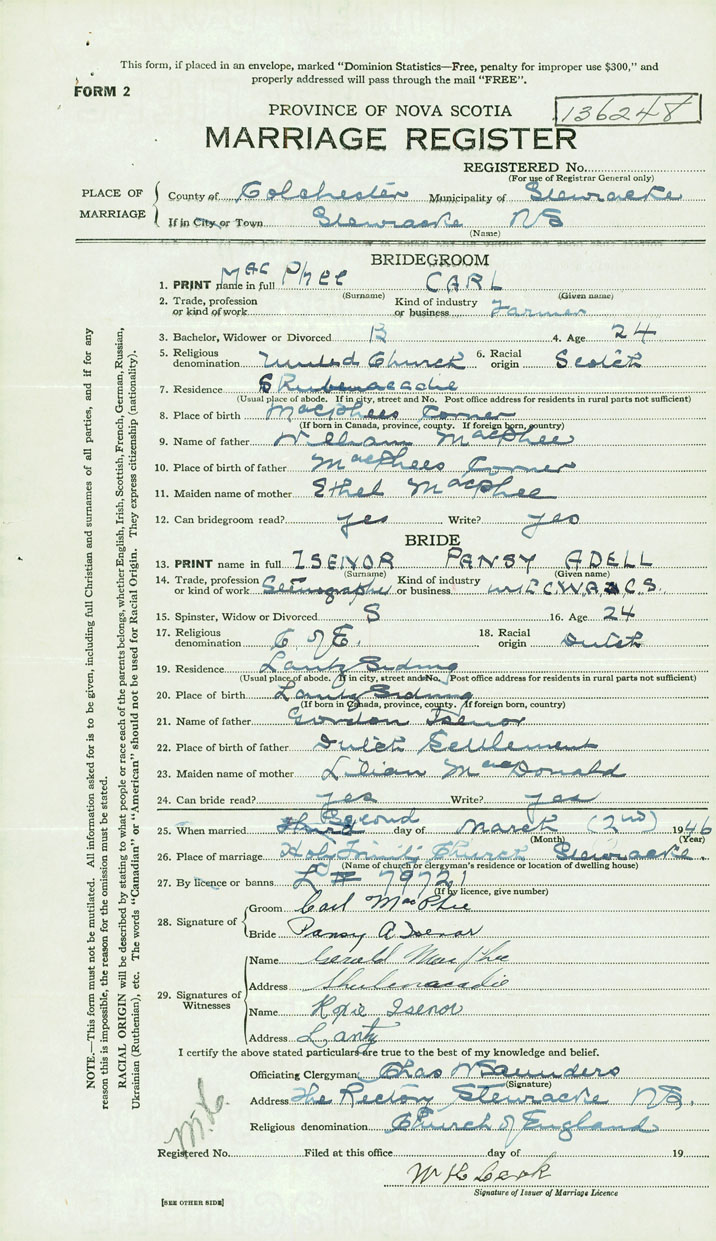 This form, if placed in an envelope, marked "Dominion Statistics—Free, penalty for improper use $300," and
properly addressed will pass through the mail "FREE".
FORM 2
PROVINCE OF NOVA SCOTIA
136248
MARRIAGE REGISTER
REGISTERED No.
(For use of Registrar General only)
PLACE OF MARRIAGE
County of Colchester Municipality of Stewiacke
If in City or Town Stewiacke NS
(Name)
BRIDEGROOM
1. PRINT name in full MacPhee CARL
(Surname) (Given name)
2. Trade, profession or kind of work Kind of industry or business Farmer
3. Bachelor, Widower or Divorced B 4. Age 24
5. Religious denomination United Church 6. Racial origin Scotch
7. Residence Shubenacadie
(Usual place of abode. If in city, street and No. Post office address for residents in rural parts not sufficient)
8. Place of birth MacPhees Corner
(If born in Canada, province, county. If foreign born, country)
9. Name of father William MacPhee
10. Place of birth of father MacPhees Corner
11. Maiden name of mother Ethel MacPhee
12. Can bridegroom read? yes Write? yes
BRIDE
13. PRINT name in full ISENOR PANSY ADELL
(Surname) (Given name)
14. Trade, profession or kind of work Stenographer Kind of industry or business C.W.A.C.S.
15. Spinster, Widow or Divorced S 16. Age 24
17. Religious denomination C of E. 18. Racial origin Dutch
19. Residence Lantz Siding
(Usual place of abode. If in city, street and No. Post office address for residents in rural parts not sufficient)
20. Place of birth Lantz Siding
(If born in Canada, province, county. If foreign born, country)
21. Name of father Gordon Isenor
22. Place of birth of father Dutch Settlement
23. Maiden name of mother Lilian MacDonald
24. Can bride read? yes Write? yes
25. When married Second day of March (2nd) 1946
(Month) (Year)
26. Place of marriage Holy Trinity Church Stewiacke.
(Name of church or clergyman's residence or location of dwelling house)
27. By licence or banns L # 79721
(If by licence, give number)
28. Signature of
Groom Carl MacPhee
Bride Pansy A Isenor
29. Signatures of Witnesses
Name Gerald MacPhee
Address Shubenacadie
Name Isenor
Address Lantz
I certify the above stated particulars are true to the best of my knowledge and belief.
Officiating Clergyman Chas W Saunders
(Signature)
Address The Rectory Stewiacke NS.
Religious denomination Church of England
Registered No. Filed at this office day of 19
Signature of Issuer of Marriage Licence
[SEE OTHER SIDE]
NOTE.—This form must not be mutilated. All information asked for is to be given, including full Christian and surnames of all parties, and if for any
reason this is impossible, the reason for the omission must be stated.
RACIAL ORIGIN will be described by stating to what people or race each of the parents belongs, whether English, Irish, Scottish, French, German, Russian,
Ukrainian (Ruthenian), etc. The words "Canadian" or "American" should not be used for Racial Origin. They express citizenship (nationality).